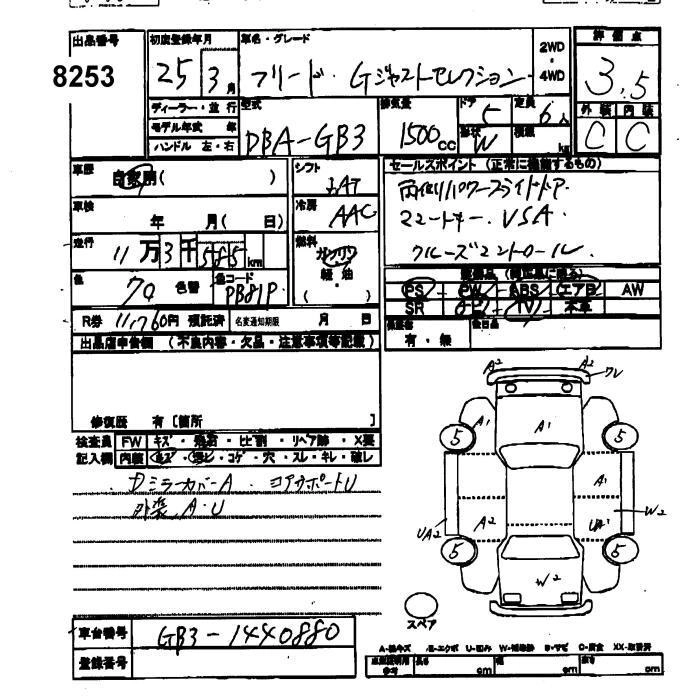 出品番号 8253
初度登録年月 25 3月
車名・グレード フリード Gジャストセレクション
2WD・4WD
評価点 3.5
ディーラー・並行
モデル年式 年
ハンドル 左・右
型式 DBA-GB3
排気量 1500cc
ドア 5
形状 W
定員 6人
積載 kg
外装 C 内装 C
車歴 自家用( )
シフト
セールスポイント (正常に機能するもの)
両側パワースライドドア.
スマートキー. VSA.
クルーズコントロール
車検 年 月( 日)
冷房 AAC
走行 11万3千585km
燃料 ガソリン 軽・油 ( )
色 色替 色コード PB81P
PS PW ABS エアB AW
SR ナビ TV 本革
R券 11,760円 預託済 名変通知期限 月 日
保証書 有・無
出品店申告欄 (不良内容・欠品・注意事項等記載)
修復歴 有 [箇所 ]
検査員 FW キズ
記入欄 内装 キズ・汚レ・コゲ・穴・スレ・キレ・破レ
DミラーカバーA コアサポートU
外装 A・U
A2 A2 ワレ
A1 A1
5 5
A1
A2 UA1 W2
UA2
5 5
W2
スペア
車台番号 GB3-1440880
登録番号
cm cm cm